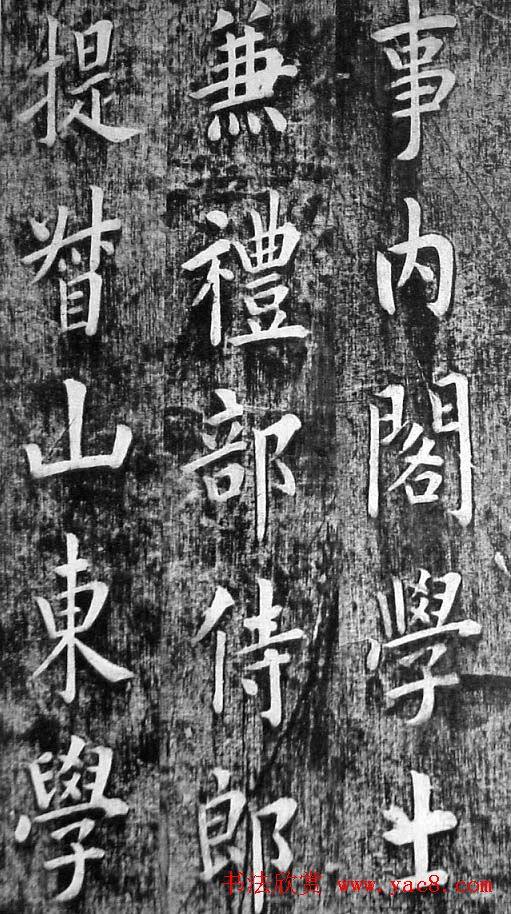 事内閣學士
兼禮部侍郎
提督山東學
书法欣赏 www.yac8.com